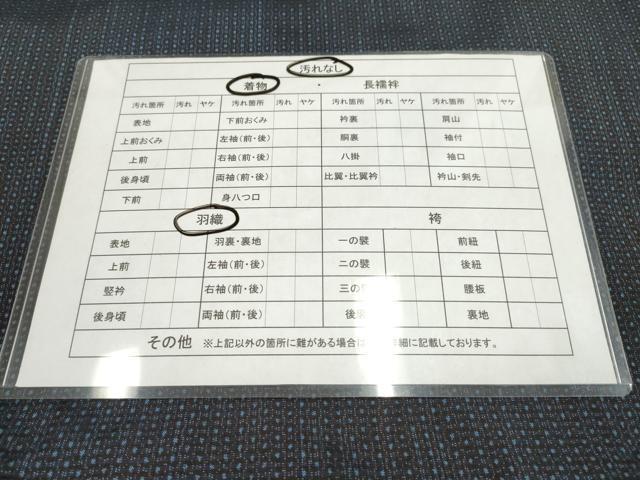 汚れなし
着物 ・ 長襦袢
汚れ箇所 汚れ ヤケ 汚れ箇所 汚れ ヤケ 汚れ箇所 汚れ ヤケ 汚れ箇所 汚れ ヤケ
表地 下前おくみ 衿裏 肩山
上前おくみ 左袖(前・後) 胴裏 袖付
上前 右袖(前・後) 八掛 袖口
後身頃 両袖(前・後) 比翼・比翼衿 衿山・剣先
下前 身八つ口
羽織 袴
表地 羽裏・裏地 一の襞 前紐
上前 左袖(前・後) 二の襞 後紐
竪衿 右袖(前・後) 三の 腰板
後身頃 両袖(前・後) 後 裏地
その他 ※上記以外の箇所に難がある場合は 細に記載しております。